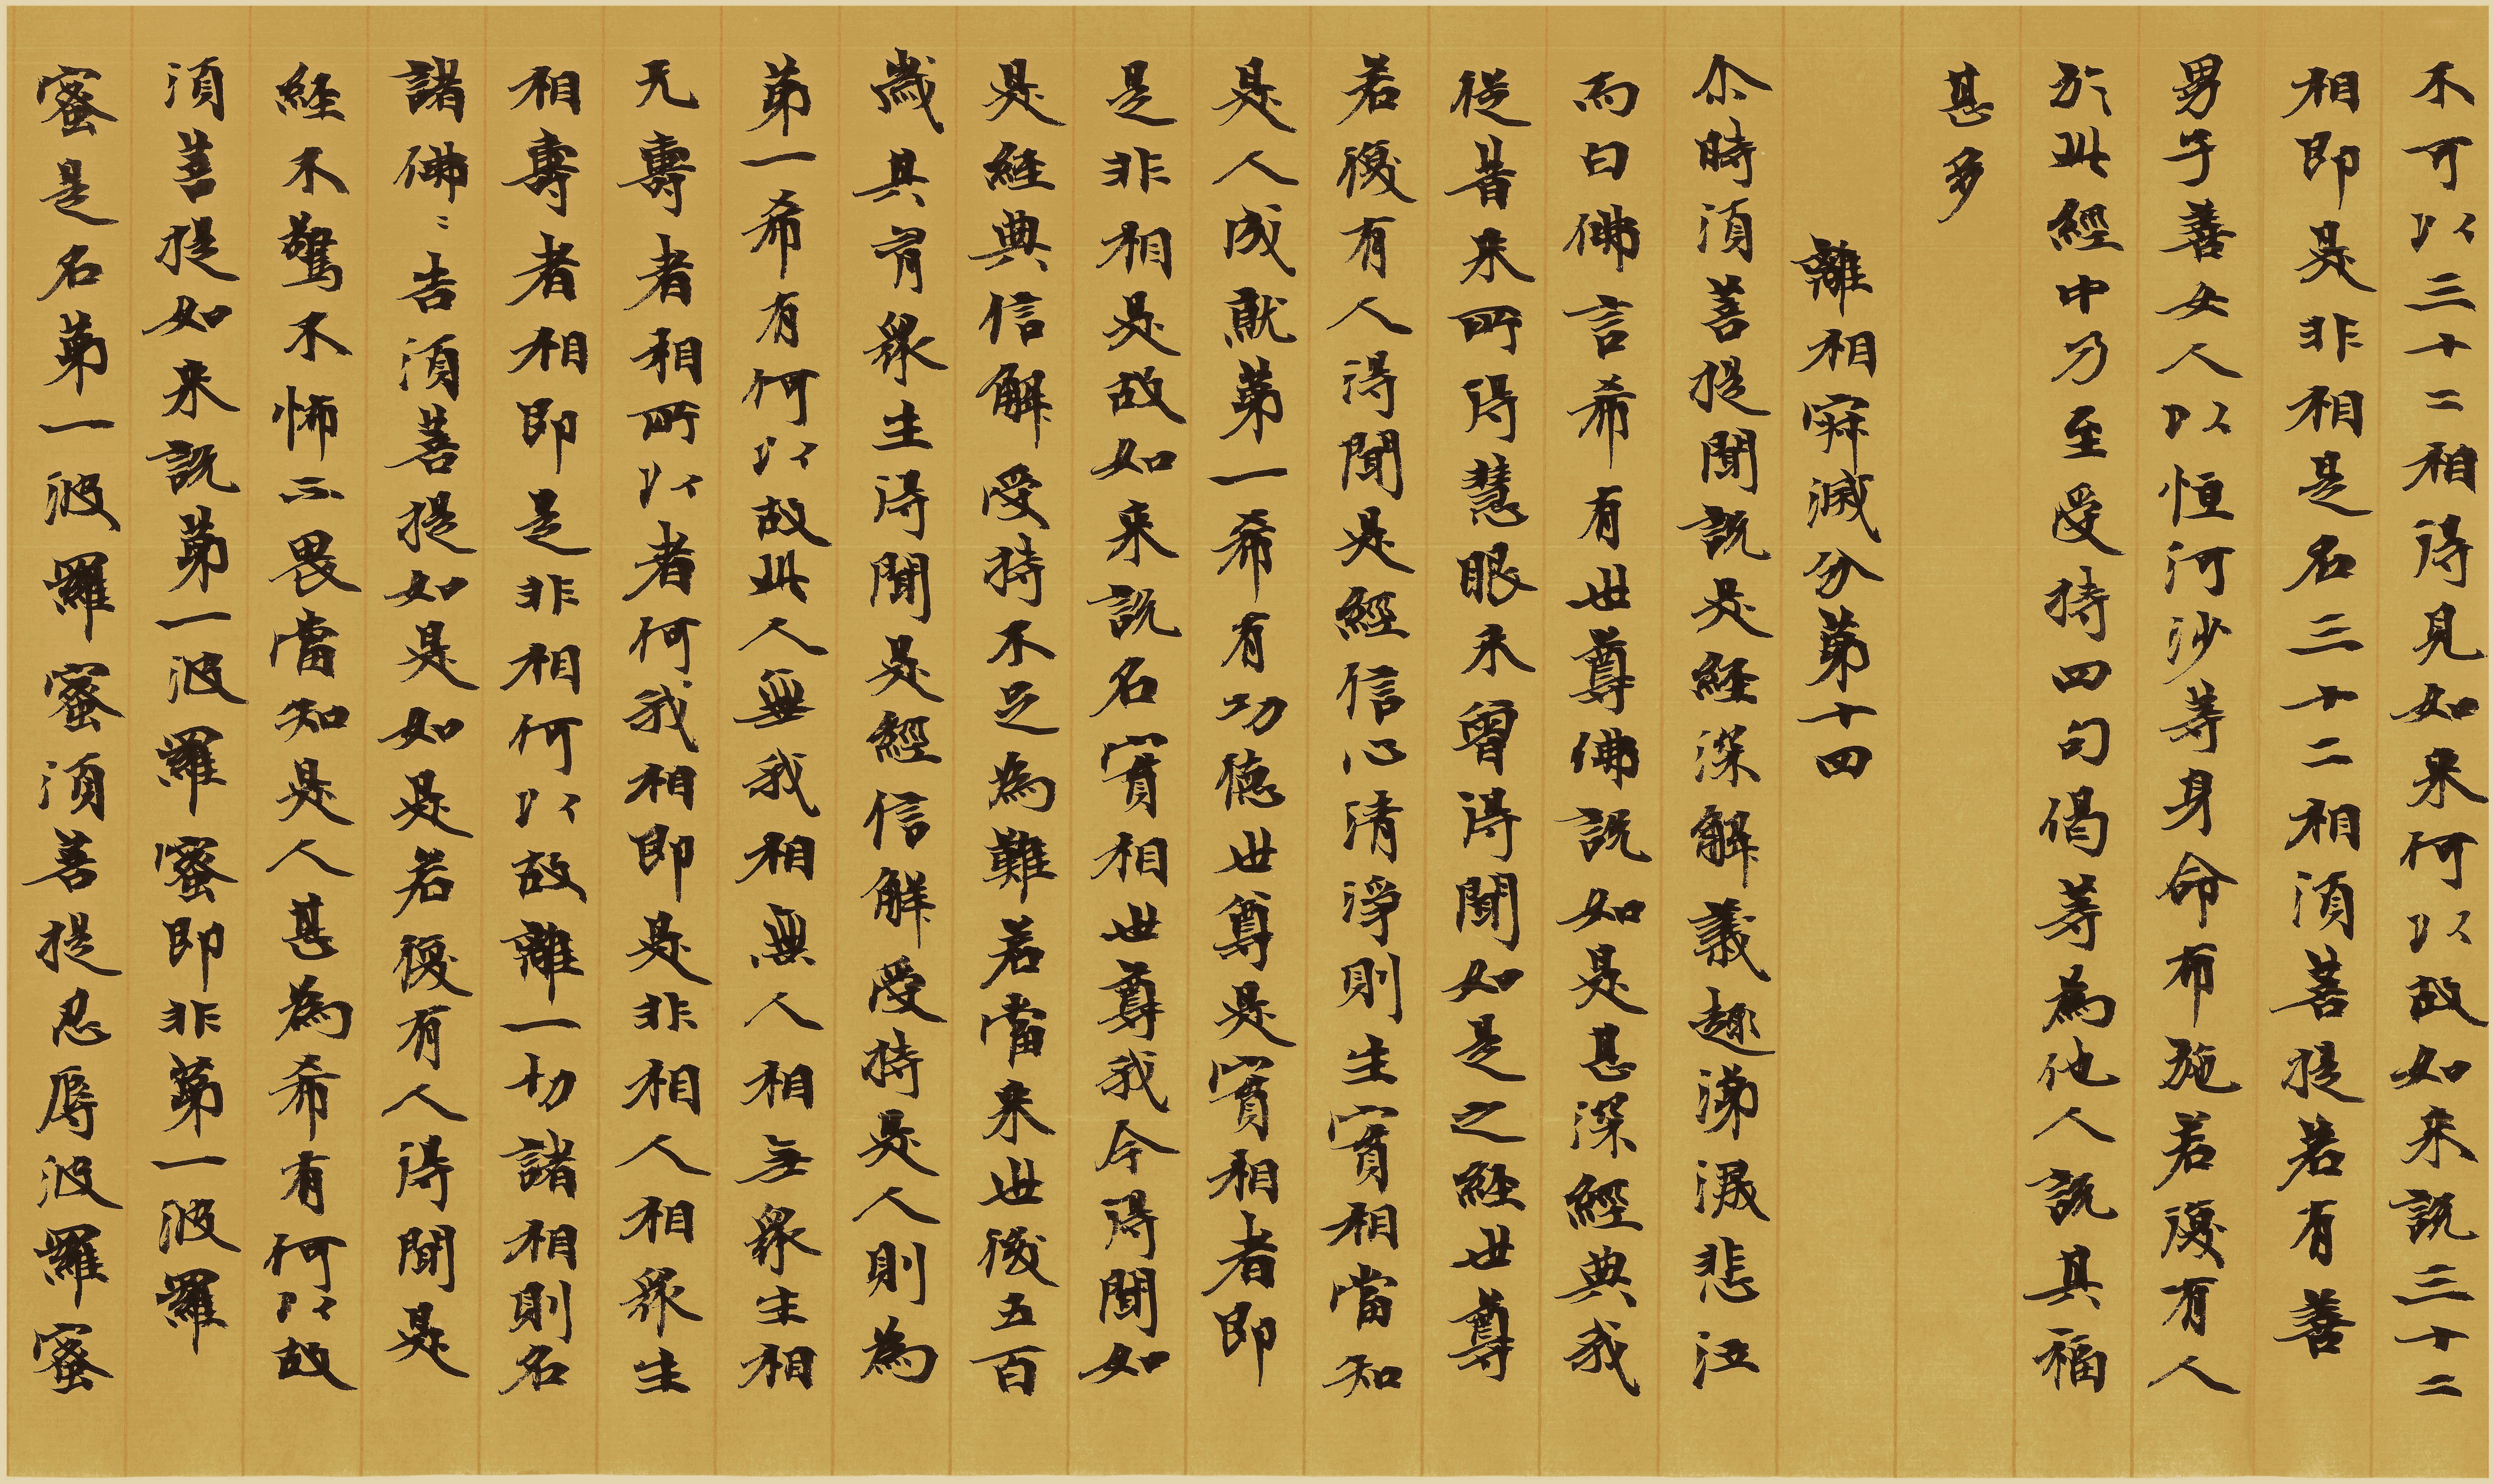 不可以三十二相得見如来何以故如来說三十二
相即是非相是名三十二相須菩提若有善
男子善女人以恒河沙等身命布施若復有人
於此經中乃至受持四句偈等為他人說其福
甚多
離相寂滅分第十四
尒時須菩提聞說是経深解義趣涕淚悲泣
而白佛言希有世尊佛說如是甚深經典我
從昔来所得慧眼未曾得聞如是之経世尊
若復有人得聞是經信心清淨則生實相當知
是人成就第一希有功德世尊是實相者即
是非相是故如来說名實相世尊我今得聞如
是経典信解受持不足為難若當来世後五百
歲其有眾生得聞是經信解受持是人則為
第一希有何以故此人無我相無人相無眾生相
无壽者相所以者何我相即是非相人相眾生
相壽者相即是非相何以故離一切諸相則名
諸佛〻告須菩提如是如是若復有人得聞是
経不驚不怖不畏當知是人甚為希有何以故
須菩提如来說第一波羅蜜即非第一波羅
蜜是名第一波羅蜜須菩提忍辱波羅蜜